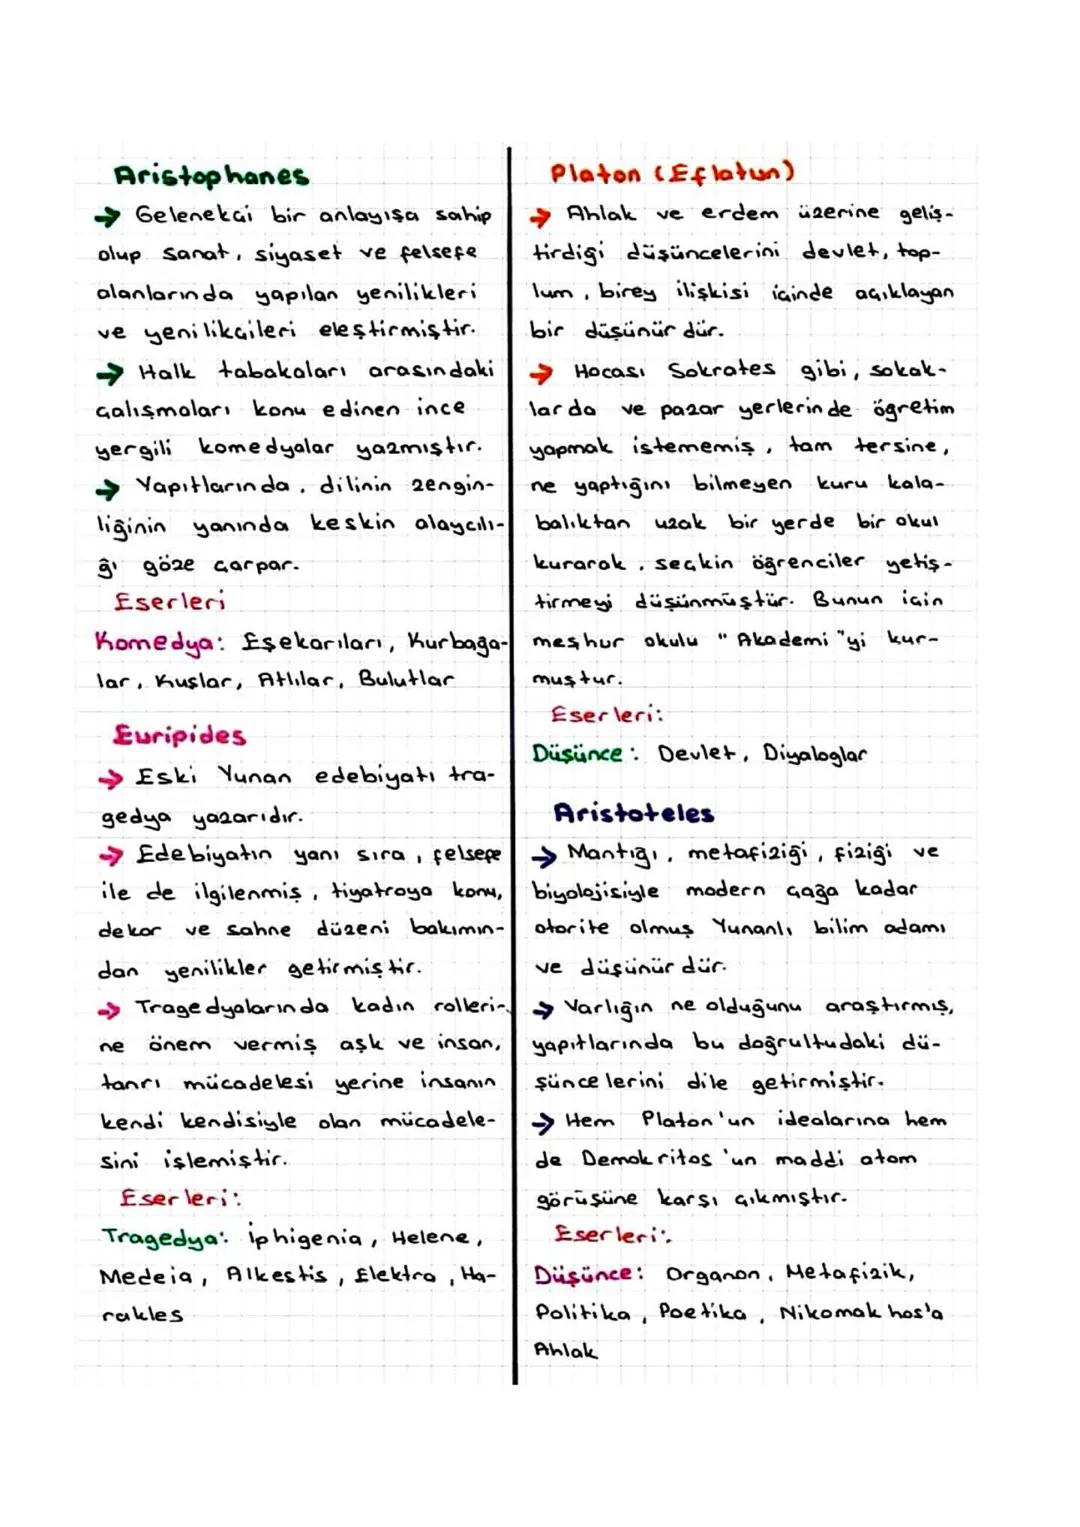 Aristophanes
→ Gelenekçi bir anlayışa sahip
olup sanat, siyaset ve felsefe
alanlarında yapılan yenilikleri
ve yenilikçileri eleştirmiştir.
→ Halk tabakaları arasındaki
çalışmaları konu edinen ince
yergili komedyalar yazmıştır.
→ Yapıtlarında, dilinin zengin-
liğinin yanında keskin alaycılı-
ğı göze çarpar.
Eserleri
Komedya: Eşekarıları, Kurbağa-
lar, Kuşlar, Atlılar, Bulutlar
Euripides
→ Eski Yunan edebiyatı tra-
gedya yazarıdır.
→ Edebiyatın yanı sıra, felsefe
ile de ilgilenmiş, tiyatroya konu,
dekor ve sahne düzeni bakımın-
dan yenilikler getirmiştir.
→ Tragedyalarında kadın rolleri-
ne önem vermiş aşk ve insan,
tanrı mücadelesi yerine insanın
kendi kendisiyle olan mücadele-
sini işlemiştir.
Eserleri:
Tragedya: İphigenia, Helene,
Medeia, Alkestis, Elektra, Ha-
rakles
Platon (Eflatun)
→ Ahlak ve erdem üzerine geliş-
tirdiği düşüncelerini devlet, top-
lum, birey ilişkisi içinde açıklayan
bir düşünürdür.
→ Hocası Sokrates gibi, sokak-
larda ve pazar yerlerinde öğretim
yapmak istememiş, tam tersine,
ne yaptığını bilmeyen kuru kala-
balıktan uzak bir yerde bir okul
kurarak, seçkin öğrenciler yetiş-
tirmeyi düşünmüştür. Bunun için
meşhur okulu "Akademi"yi kur-
muştur.
Eserleri:
Düşünce: Devlet, Diyaloglar
Aristoteles
→ Mantığı, metafiziği, fiziği ve
biyolojisiyle modern çağa kadar
otorite olmuş Yunanlı bilim adamı
ve düşünürdür.
→ Varlığın ne olduğunu araştırmış,
yapıtlarında bu doğrultudaki dü-
şüncelerini dile getirmiştir.
→ Hem Platon'un idealarına hem
de Demokritos'un maddi atom
görüşüne karşı çıkmıştır.
Eserleri:
Düşünce: Organon, Metafizik,
Politika, Poetika, Nikomakhos'a
Ahlak